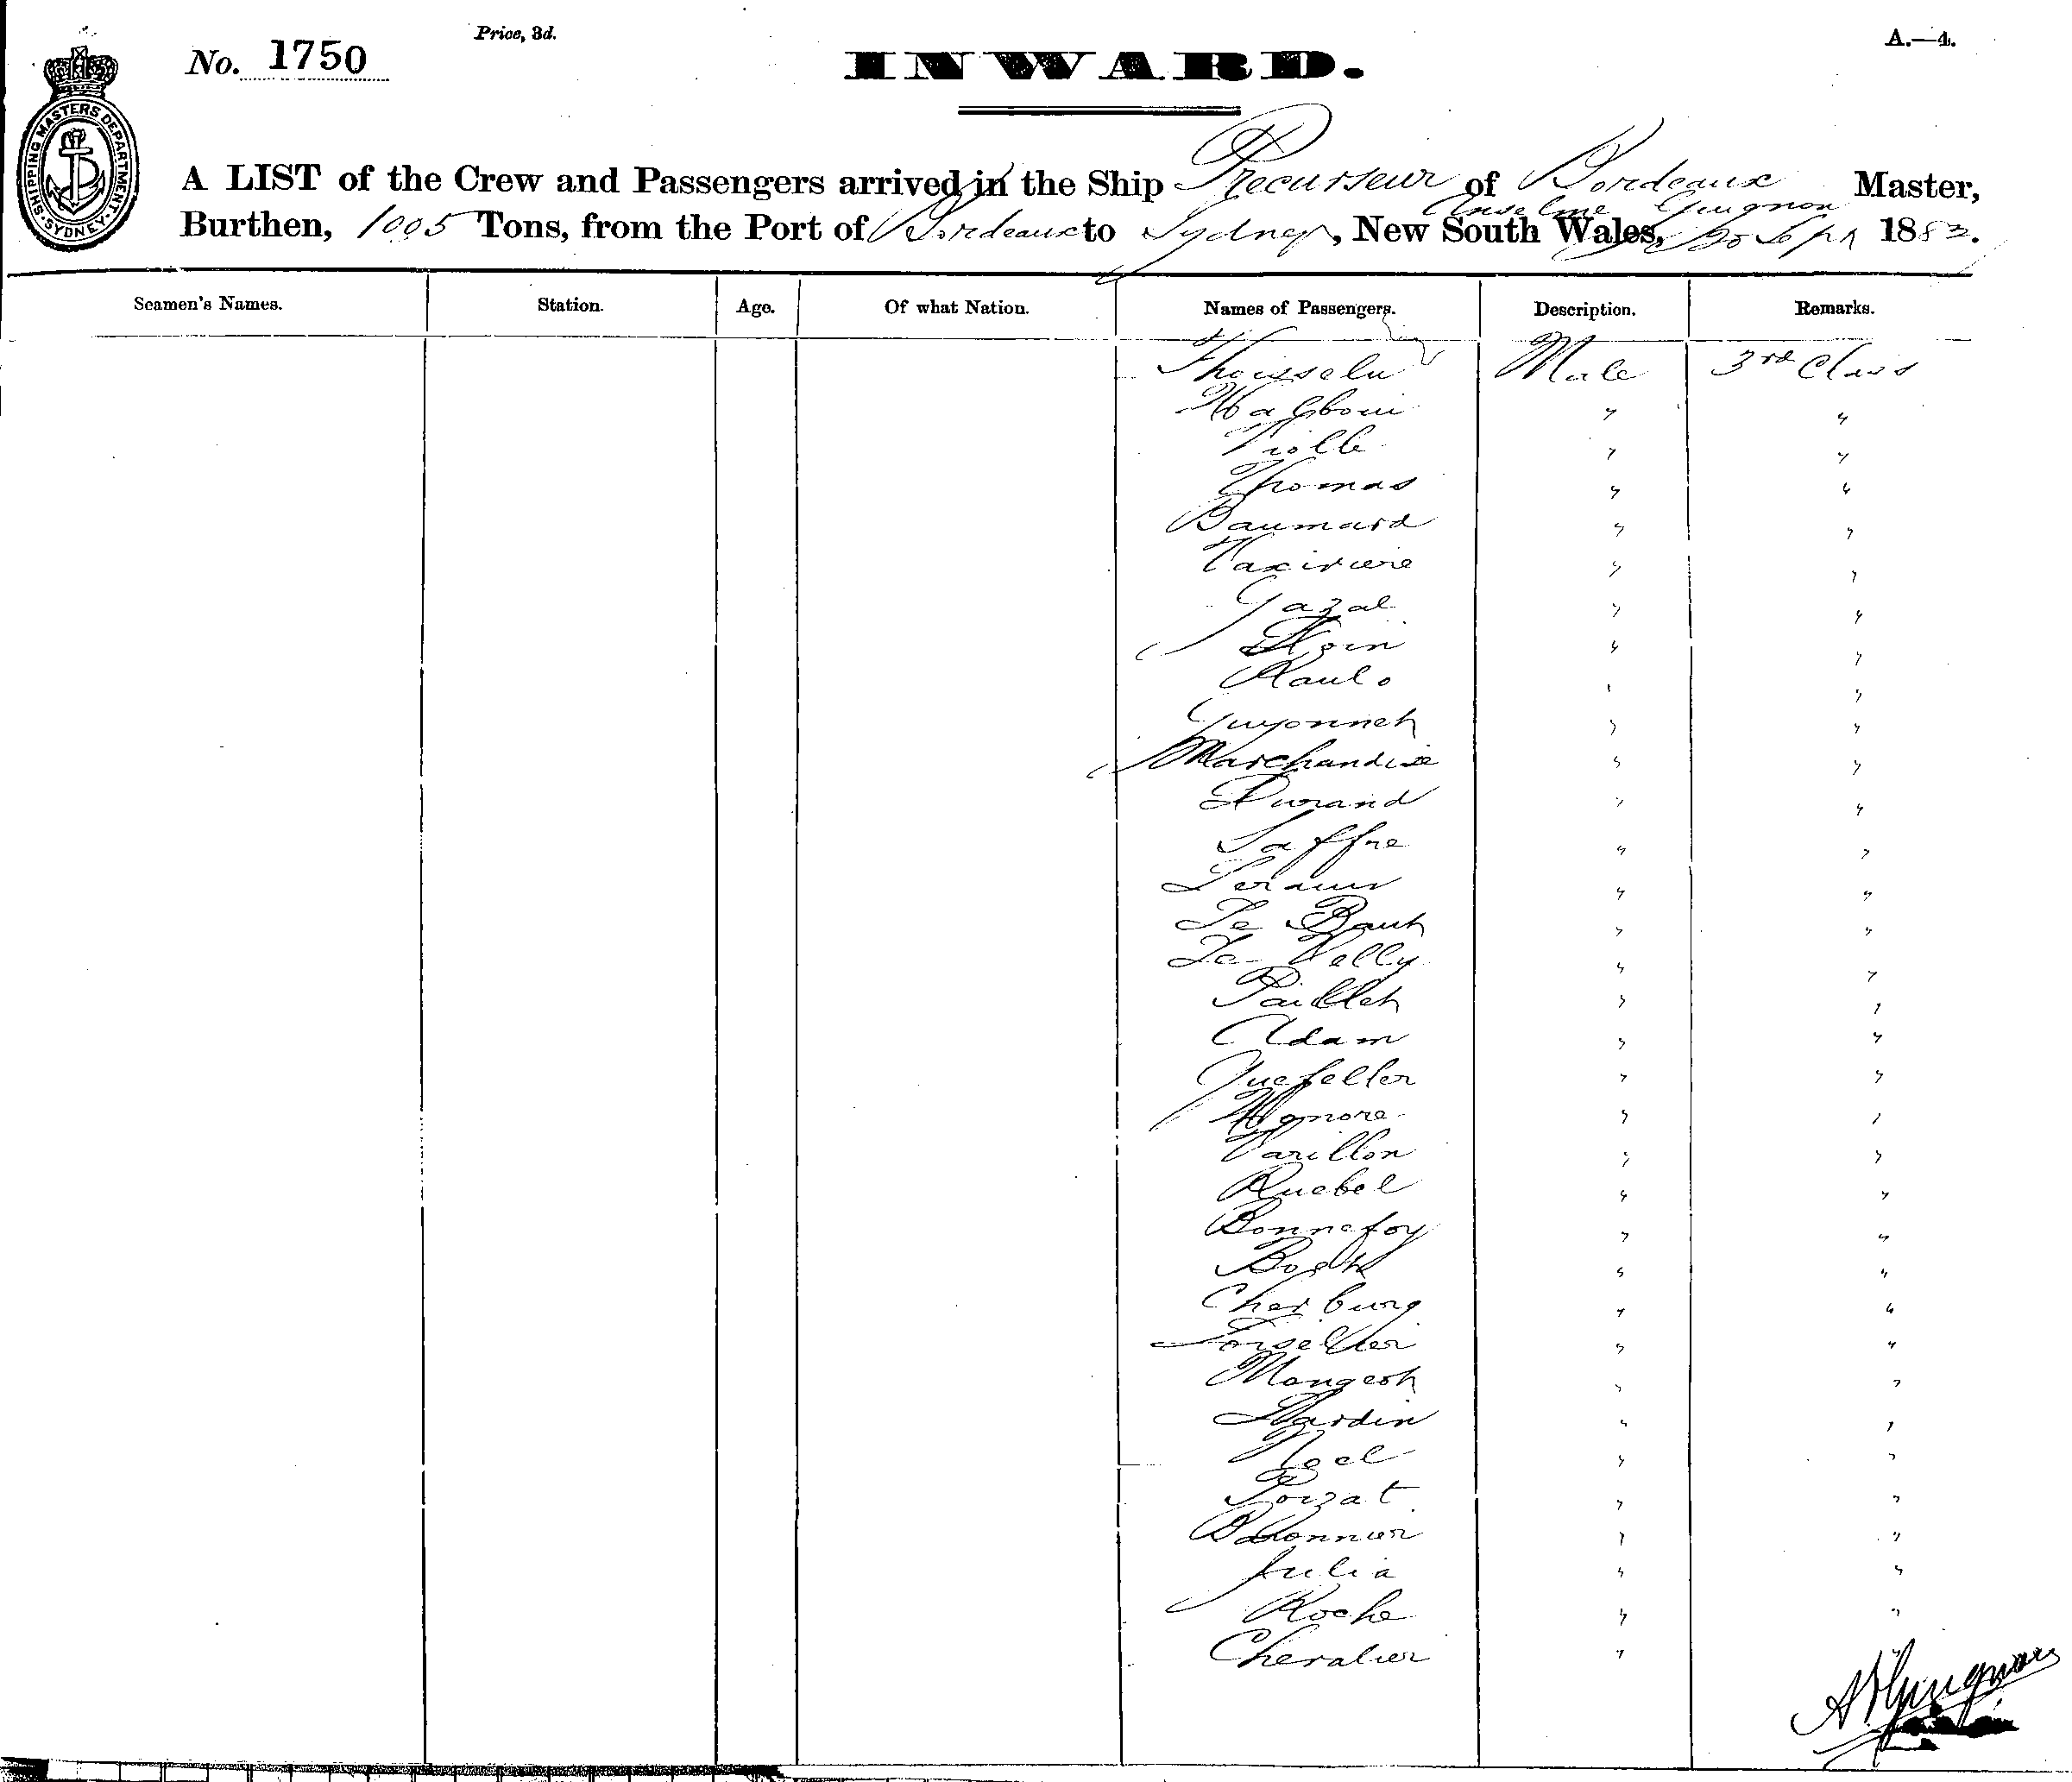 No. 1750
Price, 3d.
INWARD.
A.—4.
SHIPPING MASTERS DEPARTMENT. SYDNEY.
A LIST of the Crew and Passengers arrived in the Ship Precurseur of Bordeaux Master,
Anselme Guignon
Burthen, 1005 Tons, from the Port of Bordeaux to Sydney, New South Wales, Sept 1883.
Seamen's Names. Station. Age. Of what Nation. Names of Passengers. Description. Remarks.
Male 3rd Class
" "
Violle " "
Thomas " "
Baumard " "
" "
Gazal " "
" "
Raulo " "
Guyonnet " "
Marchandise " "
Durand " "
Saffre " "
" "
Le Baut " "
Le Velly " "
Paillet " "
Adam " "
Queffeller " "
Honore " "
Varillon " "
Ruebel " "
Bonnefoy " "
" "
Cherburg " "
" "
Mangeot " "
Hardin " "
Noel " "
Poizat " "
" "
Julia " "
Roche " "
Chevalier "
A Guignon